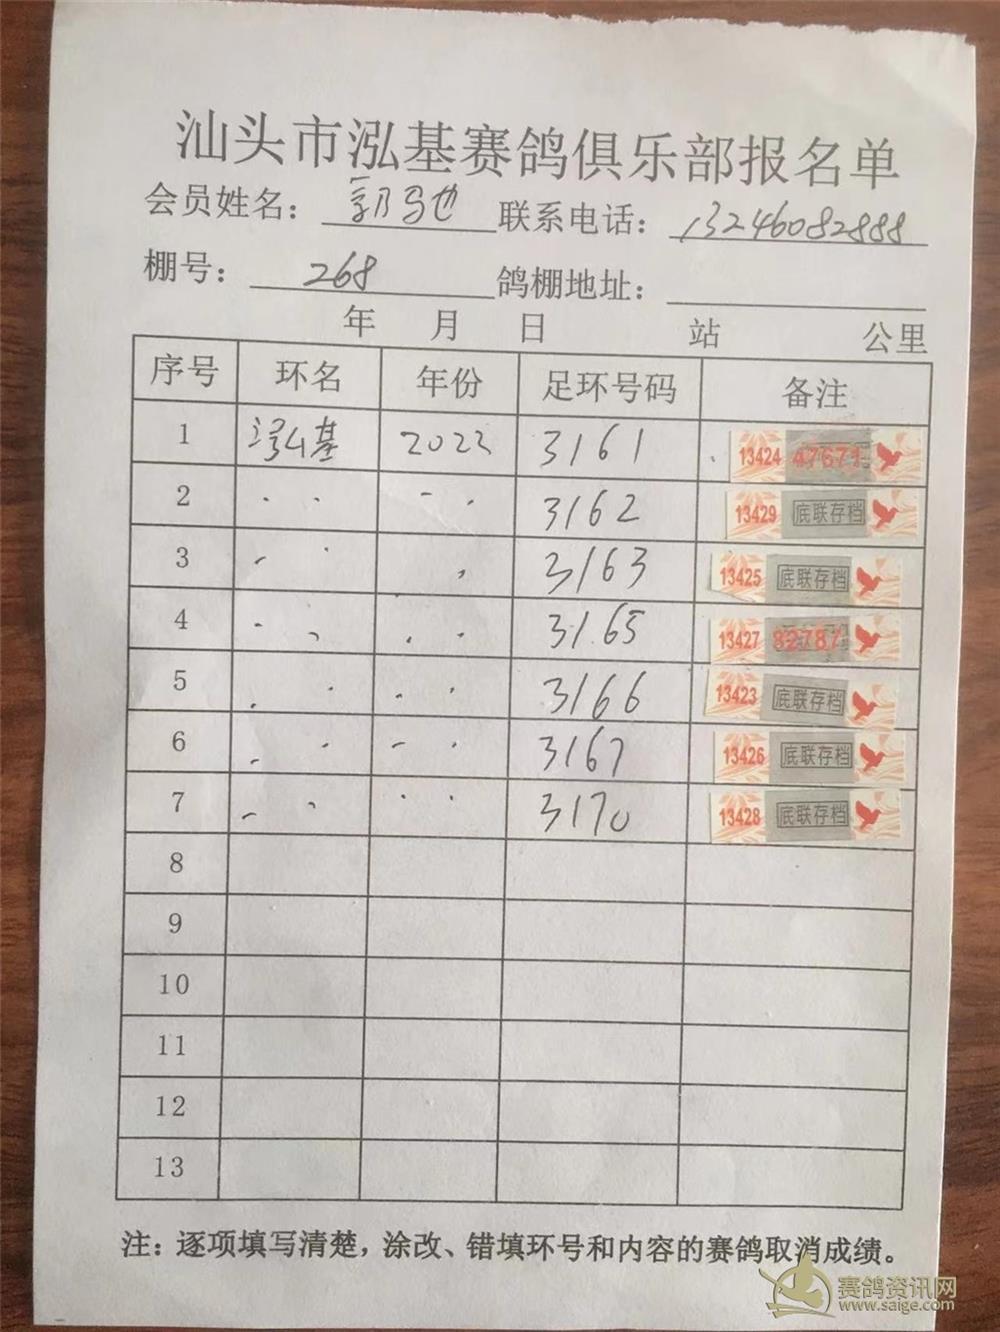 汕头市泓基赛鸽俱乐部报名单
会员姓名：郭马也 联系电话：13246082888
棚号：268 鸽棚地址：
年 月 日 站 公里
序号 环名 年份 足环号码 备注
1 泓基 2022 3161 13424 47671
2 3162 13429 底联存档
3 3163 13425 底联存档
4 3165 13427 82787
5 3166 13423 底联存档
6 3167 13426 底联存档
7 3170 13428 底联存档
8
9
10
11
12
13
注：逐项填写清楚，涂改、错填环号和内容的赛鸽取消成绩。
赛鸽资讯网
www.saige.com